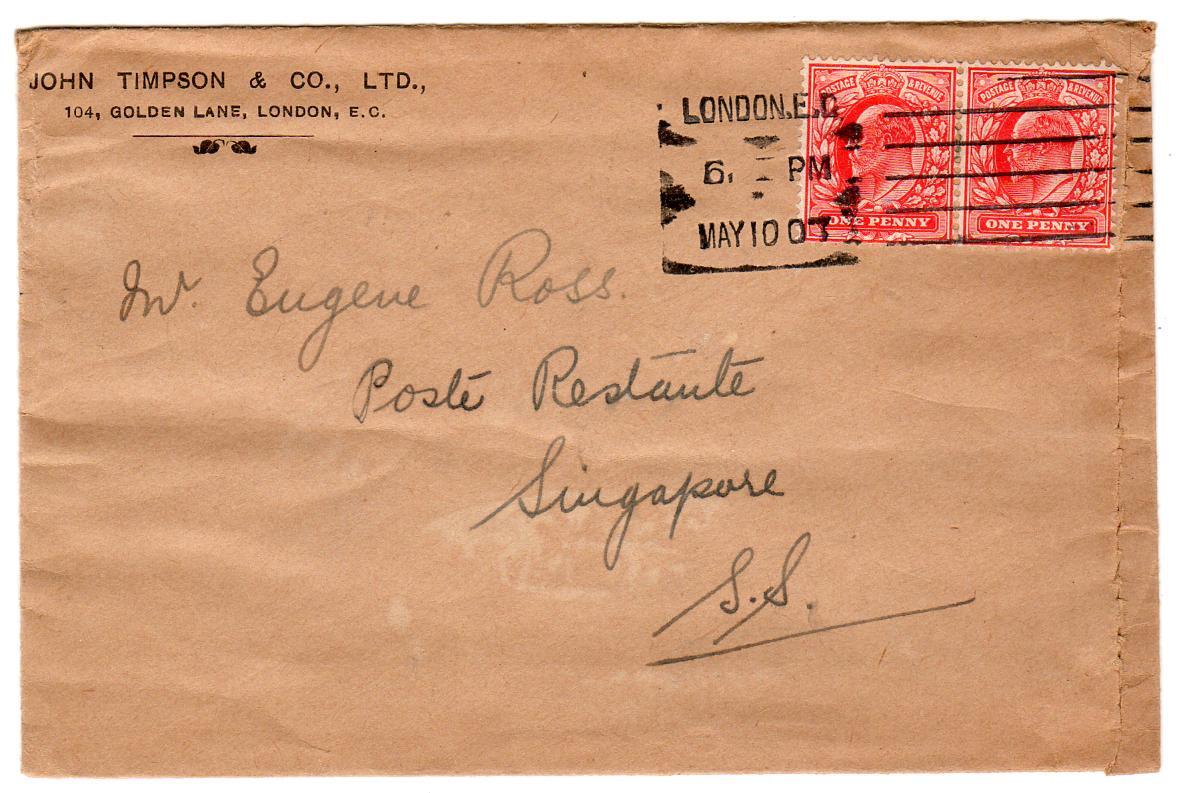 JOHN TIMPSON & CO., LTD.,
104, GOLDEN LANE, LONDON, E.C.
LONDON. E.C.
6. PM
MAY 10 0
POSTAGE & REVENUE
ONE PENNY
POSTAGE & REVENUE
ONE PENNY
Mr. Eugene Ross.
Poste Restante
Singapore
S.S.